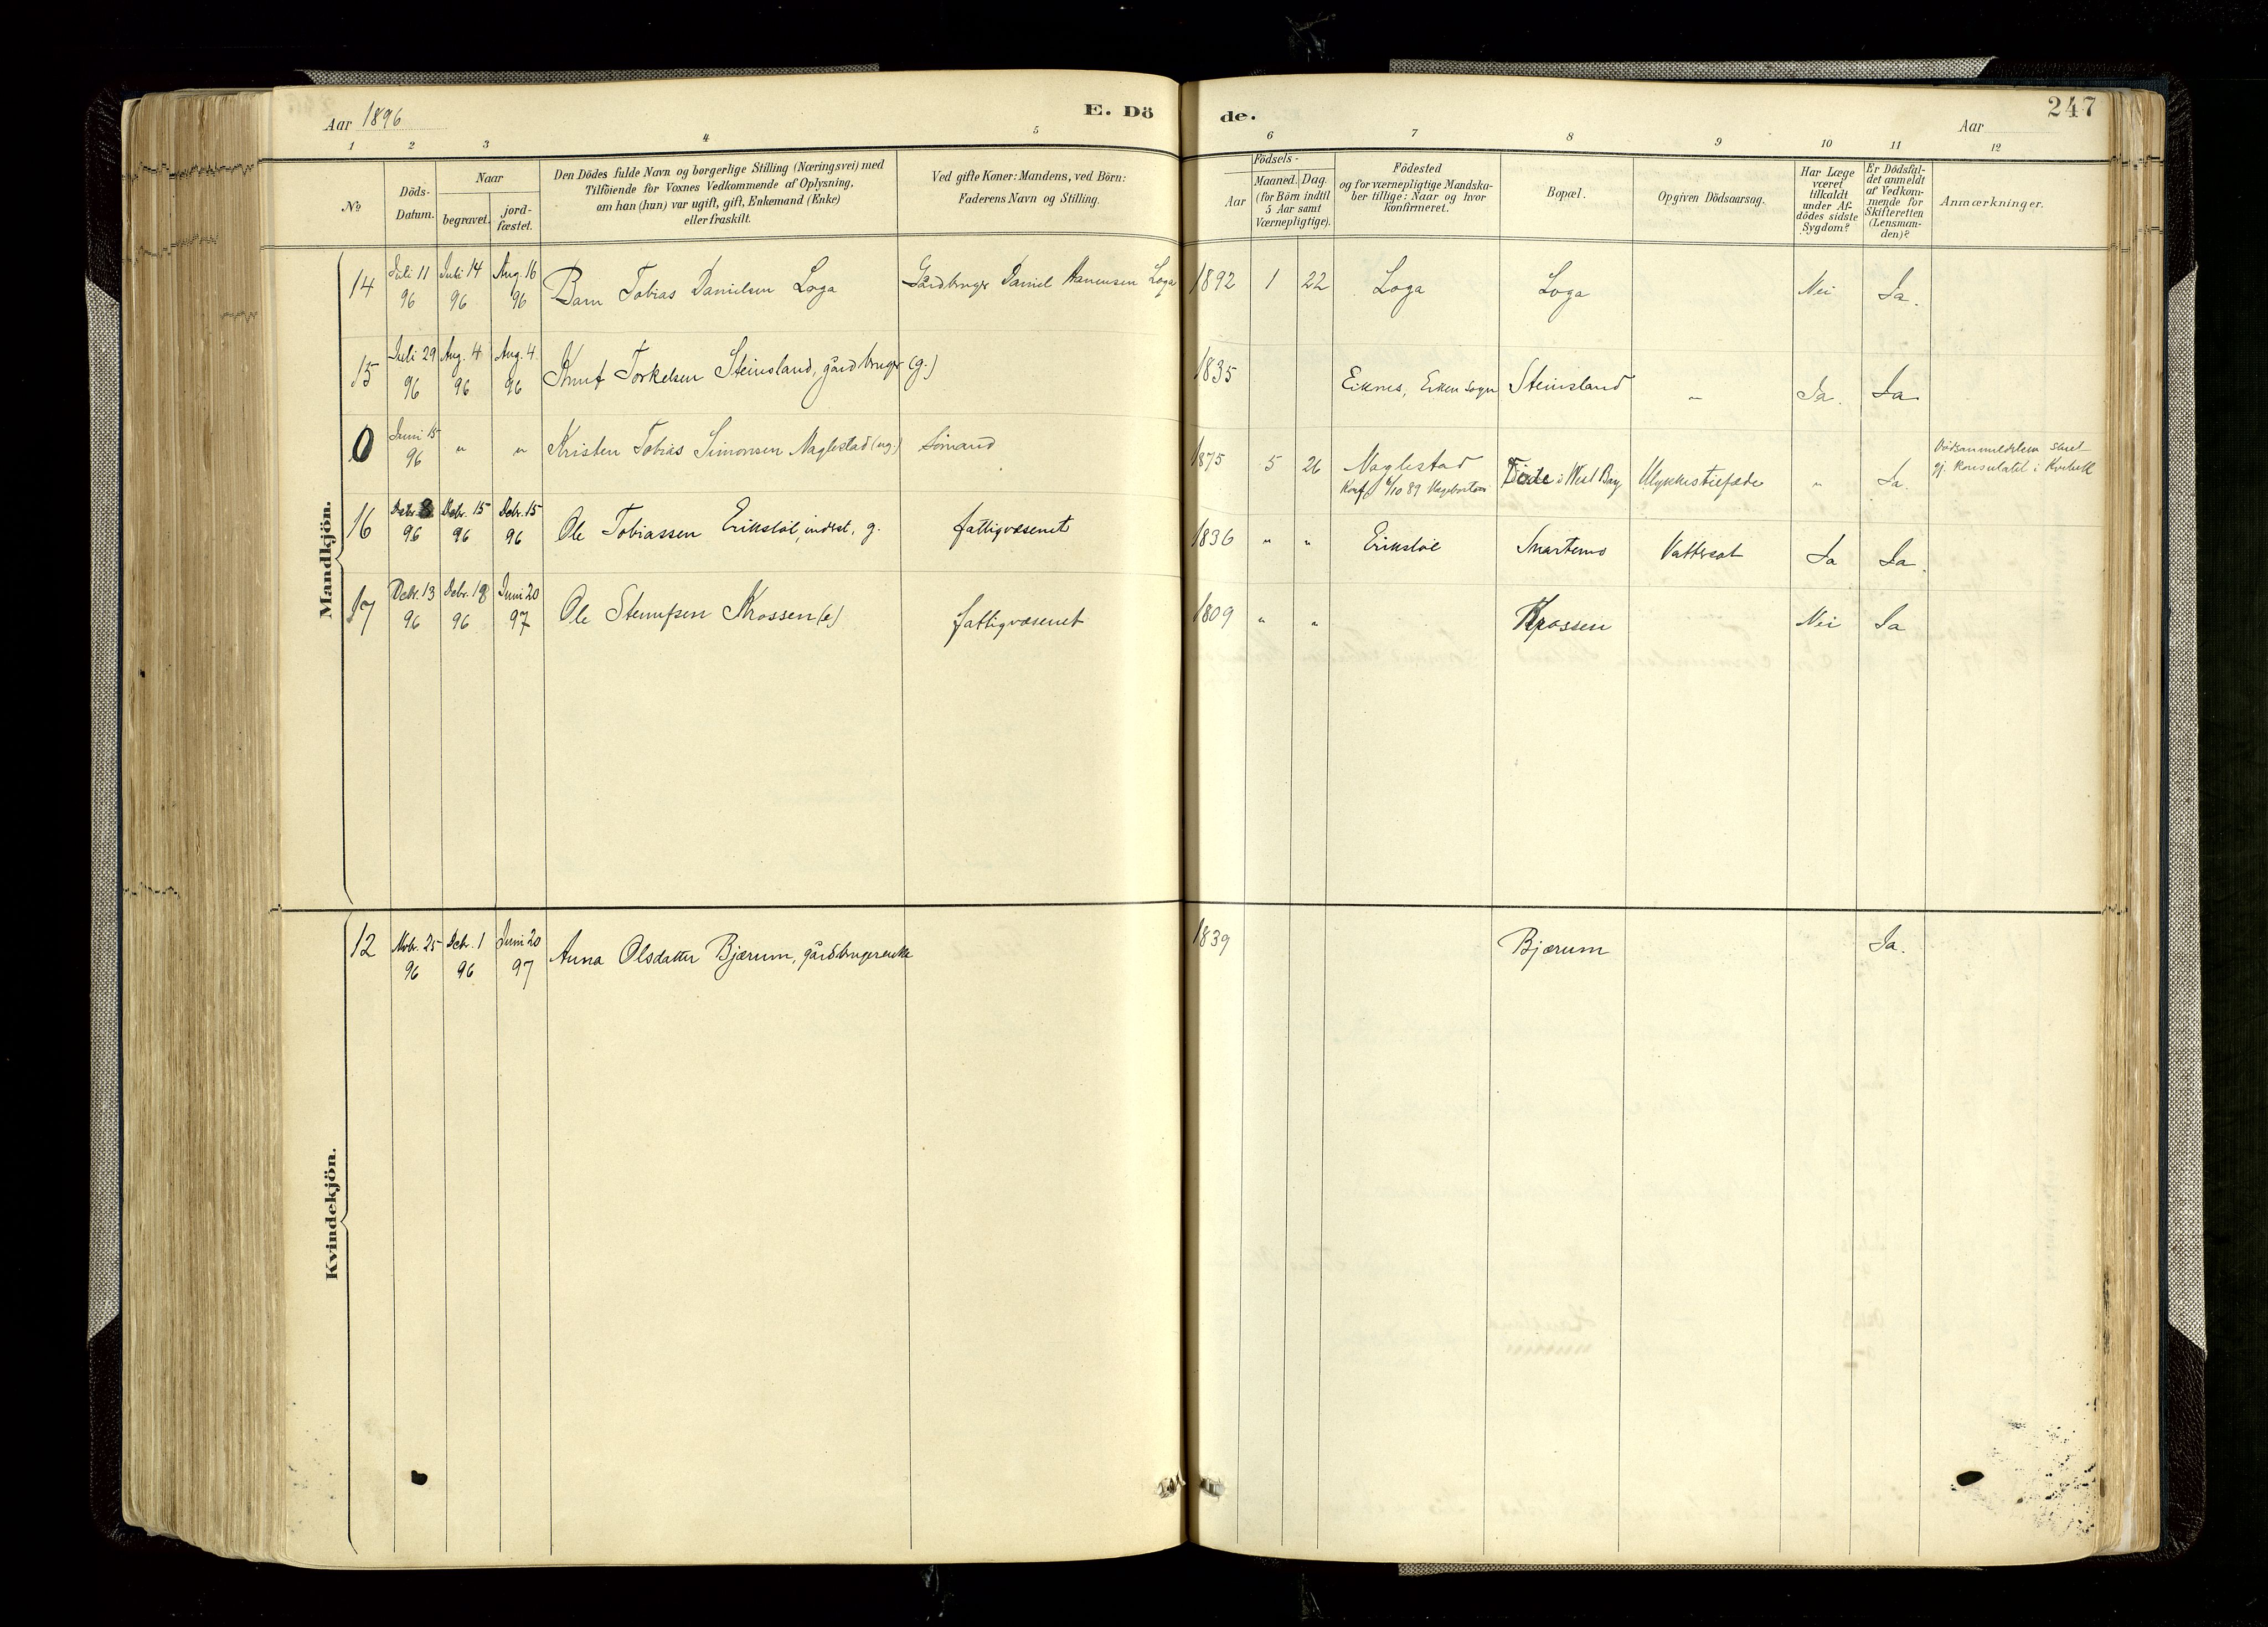 Aar 1896
E. Dö
de.
Aar
247
1 2 3 4 5 6 7 8 9 10 11 12
№
Döds-
Datum.
Naar
begravet.
jord-
fæstet.
Den Dödes fulde Navn og borgerlige Stilling (Næringsvei) med
Tilföiende for Voxnes Vedkommende af Oplysning,
om han (hun) var ugift, gift, Enkemand (Enke)
eller fraskilt.
Ved gifte Koner: Mandens, ved Börn:
Faderens Navn og Stilling.
Födsels-
Aar
Maaned. Dag.
(for Börn indtil
5 Aar samt
Værnepligtige).
Födested
og for værnepligtige Mandska-
ber tillige: Naar og hvor
konfirmeret.
Bopæl.
Opgiven Dödsaarsag.
Har Læge
været
tilkaldt
under Af-
dödes sidste
Sygdom?
Er Dödsfal-
det anmeldt
af Vedkom-
mende for
Skifteretten
(Lensman-
den)?
Anmærkninger.
Mandkjön.
14 Juli 11 96 Juli 14 96 Aug. 16 96 Barn Tobias Danielsen Loga Gårdbruger Daniel Loga 1892 1 22 Loga Loga Nei Ja.
15 Juli 29 96 Aug. 4 96 Aug. 4. 96 Knut Torkelsen Steinsland, gårdbruger (g.) 1835 Eiknes, sogn Steinsland " Ja. Ja
0 Juni 15 96 " " Kristen Tobias Simonsen Naglestad (ug.) Sömand 1875 5 26 Naglestad
Konf. /10 89 Döde i West Bay Ulykkestilfælde " Ja.
gj. Konsulatet i
16 Debr. 8 96 Debr. 15 96 Debr. 15 96 Ole Tobiassen Erikstöl, inderst, g. fattigvæsenet 1836 " " Erikstöl Snartemo Vattersot Ja Ja.
17 Debr. 13 96 Debr. 18 96 Juni 20 97 Ole Krossen (e) fattigvæsenet 1809 " " Krossen Nei Ja
Kvindekjön.
12 Nvbr. 25 96 Debr. 1 96 Juni 20 97 Anna Olsdatter Bjærum, gårdbrugerenke 1839 Bjærum Ja.